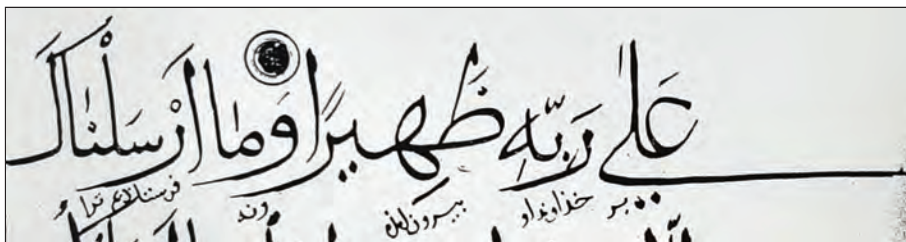 عَلٰي رَبِّهِ ظَهِيرًا وَمٰا اَرْسَلْنٰاكَ
بر خداوند او وند فرستادیم ترا